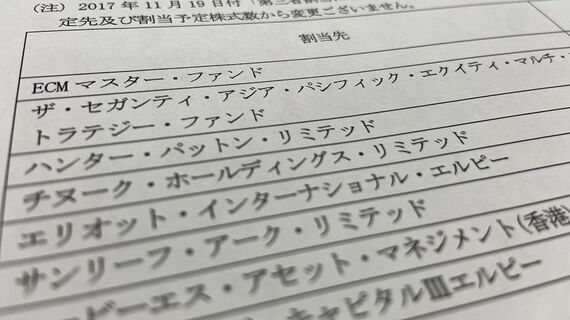 (注) 2017年11月19日付「第三者割当
定先及び割当予定株式数から変更ございません。
割当先
ECM マスター・ファンド
ザ・セガンティ・アジア・パシフィック・エクイティ・マルチ・
トラテジー・ファンド
ハンター・パットン・リミテッド
チヌーク・ホールディングス・リミテッド
エリオット・インターナショナル・エルピー
サンリーフ・アーク・リミテッド
ービーエス・アセット・マネジメント(香港)
キャピタルⅢエルピー